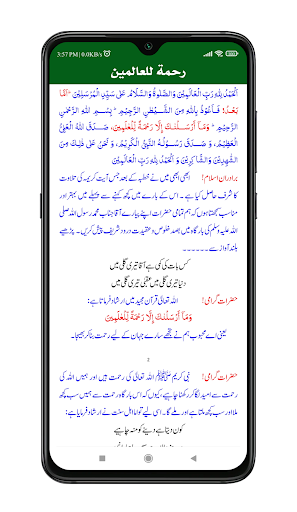 3:57 PM | 0.0KB/s
رحمة للعالمين
اَلْحَمْدُ لِلّٰہِ رَبِّ الْعَالَمِیْنَ وَالصَّلٰوۃُ وَالسَّلَامُ عَلٰی سَیِّدِ الْمُرْسَلِیْنَ ۔ اَمَّا
بَعْدُ! فَاَعُوْذُ بِاللّٰہِ مِنَ الشَّیْطٰنِ الرَّجِیْمِ ۔ بِسْمِ اللّٰہِ الرَّحْمٰنِ
الرَّحِیْمِ ۔ وَمَا اَرْسَلْنٰکَ اِلَّا رَحْمَۃً لِّلْعٰلَمِیْنَ۔ صَدَقَ اللّٰہُ الْعَلِیُّ
الْعَظِیْمُ وَ صَدَقَ رَسُوْلُہُ النَّبِیُّ الْکَرِیْمُ، وَ نَحْنُ عَلٰی ذٰلِکَ مِنَ
الشّٰھِدِیْنَ وَالشّٰکِرِیْنَ وَ الْحَمْدُ لِلّٰہِ رَبِّ الْعَالَمِیْنَ
برادران اسلام! ابھی ابھی میں نے خطبہ کے بعد جس آیت کریمہ کی تلاوت
کا شرف حاصل کیا ہے ۔ اس کے بارے میں کچھ کہنے سے پہلے میں بہتر اور
مناسب سمجھتا ہوں کہ ہم تمامی حضرات اپنے پیارے آقا جناب محمد رسول اللہ صلی
اللہ علیہ وسلم کی بارگاہ میں بصد خلوص و عقیدت درود شریف پیش کریں ۔ پڑھیے
بلند آواز سے ۔۔۔۔۔۔
کس بات کی کمی ہے آقا تیری گلی میں
دنیا تیری گلی میں عقبیٰ تیری گلی میں
حضرات گرامی! اللہ تعالی قرآن مجید میں ارشاد فرماتا ہے:
وَمَا اَرْسَلْنٰکَ اِلَّا رَحْمَۃً لِّلْعٰلَمِیْنَ
یعنی اے محبوب ہم نے تجھے سارے جہان کے لیے رحمت بنا کر بھیجا۔
2
حضرات گرامی! نبی کریم ﷺ اللہ تعالی کی رحمت ہیں اور ہمیں اللہ کی
رحمت سے امید لگا کر رکھنا ہے، کیوں کہ اس بارگاہ رحمت سے ہمیں سب کچھ
ملا اور سب کچھ ملتا ہے اور ملے گا۔ اسی لیے تو امام اہل سنت نے ارشاد فرمایا ہے:
کون دیتا ہے دینے کو منہ چاہیے